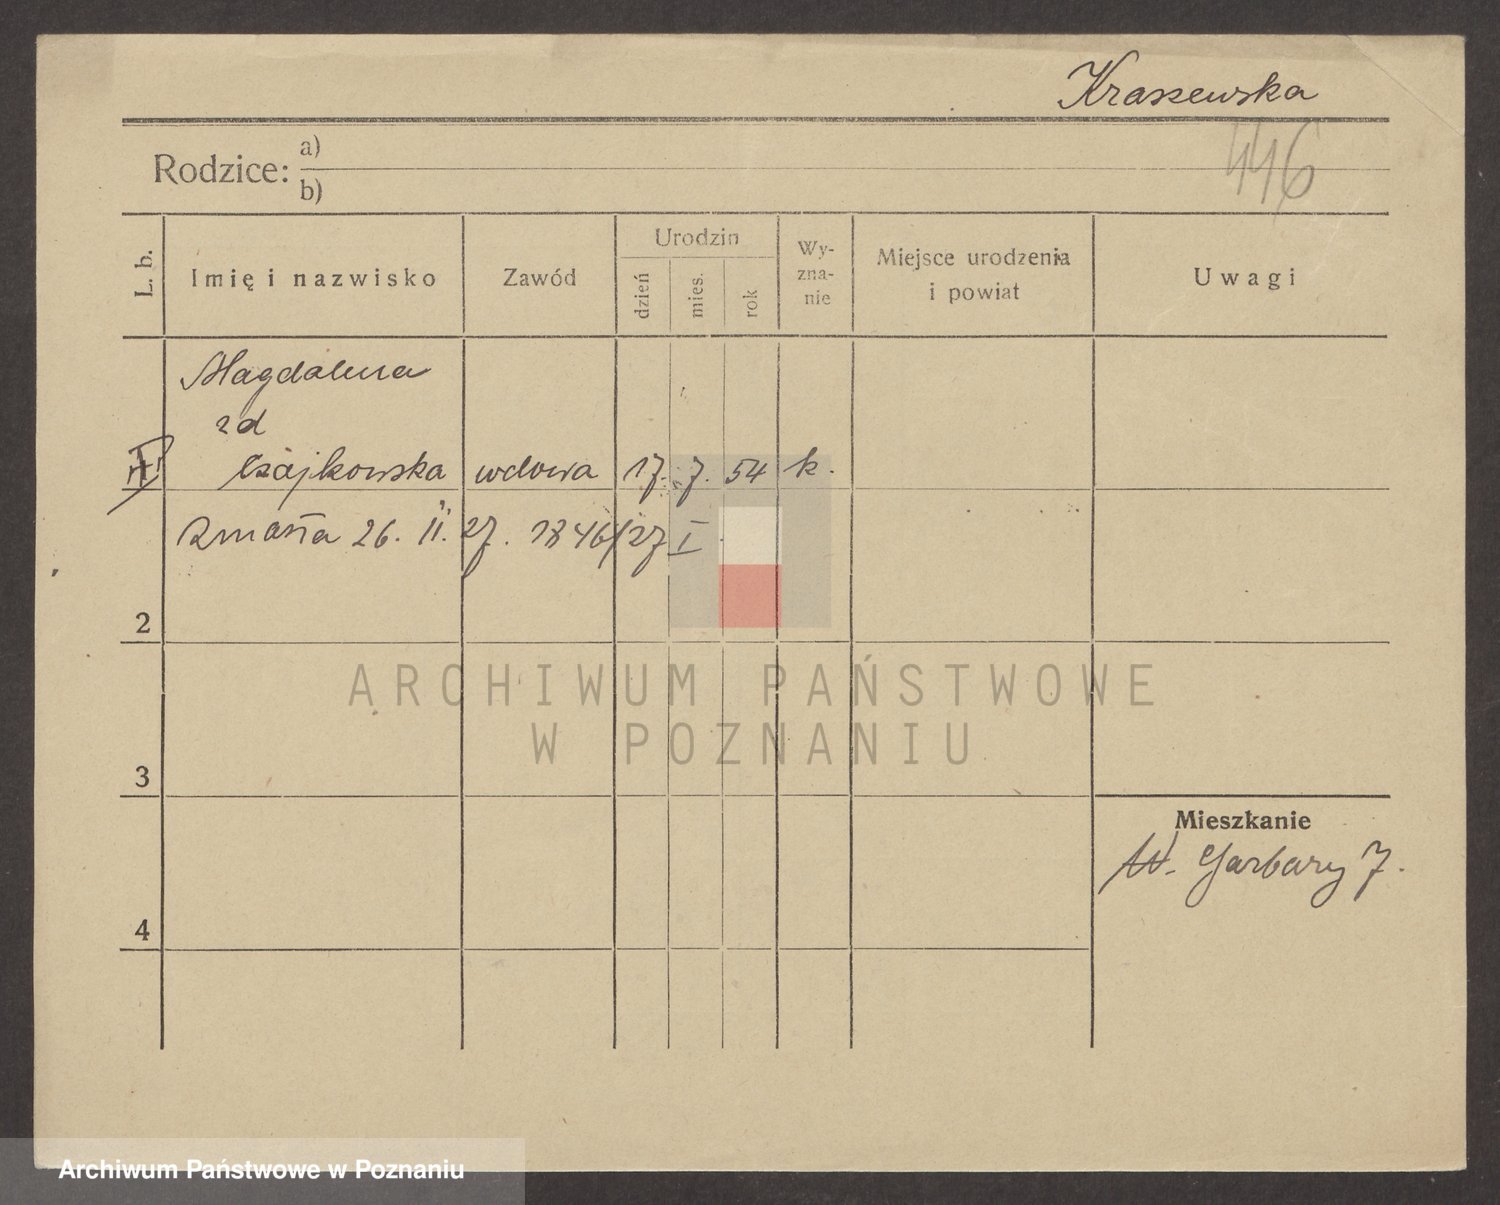 Kraszewska
446
Rodzice: a)
b)
L. b.
Imię i nazwisko
Zawód
Urodzin
dzień
mies.
rok
Wy-
zna-
nie
Miejsce urodzenia
i powiat
Uwagi
Magdalena
zd
Czajkowska wdowa 17. 7. 54 k.
zmarła 26. II. 27. 1846/27 I
2
ARCHIWUM PAŃSTWOWE
W POZNANIU
3
Mieszkanie
W. Garbary 7.
4
Archiwum Państwowe w Poznaniu